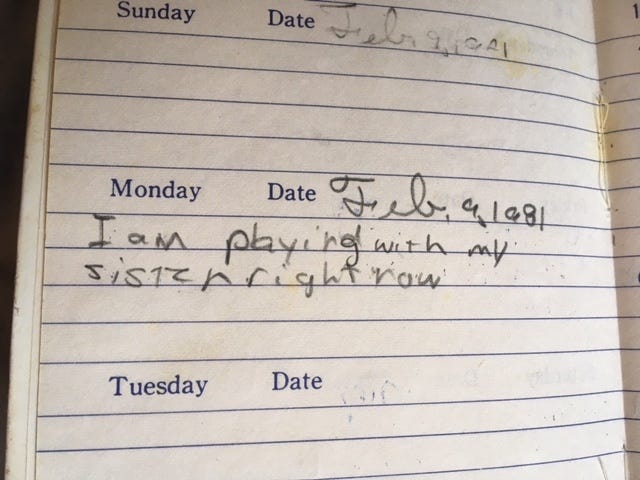 Sunday Date Feb. 9, 1981
Monday Date Feb. 9, 1981
I am playing with my
sister right now
Tuesday Date